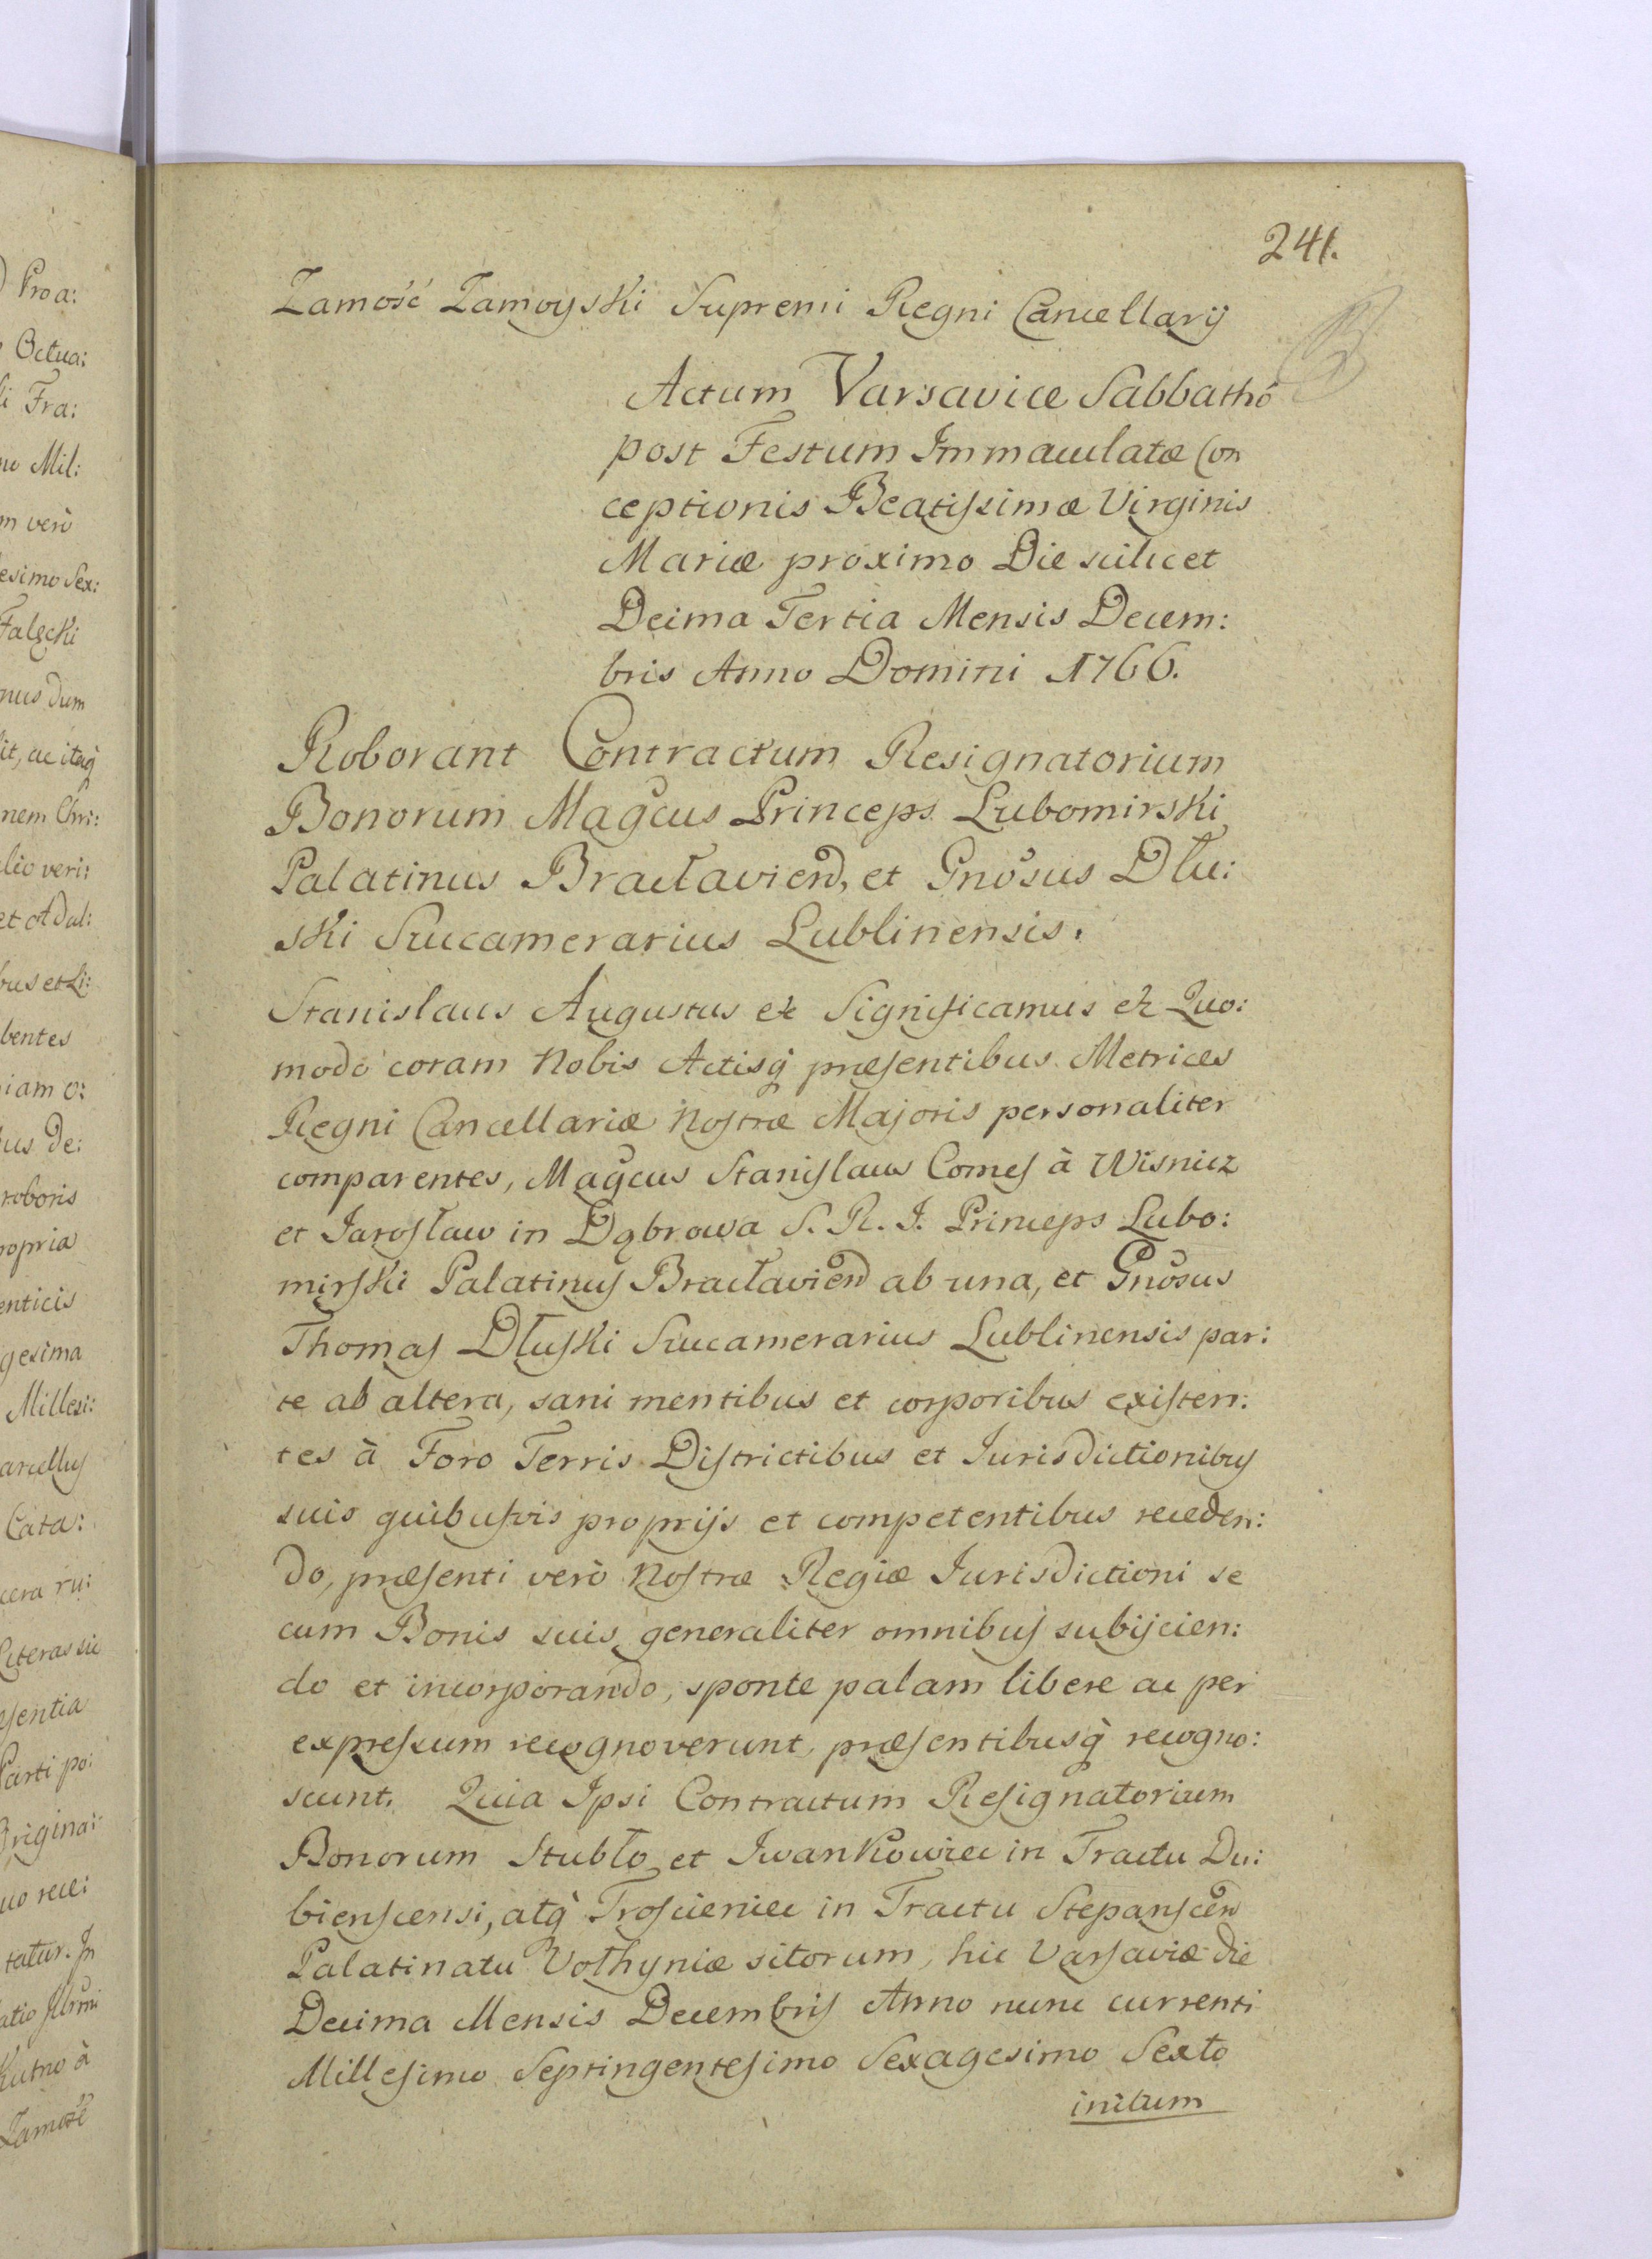 241.
Zamość Zamoyski Supremi Regni Cancellarij
Actum Varsaviæ Sabbathô
post Festum Immaculatæ Con
ceptionis Beatissimæ Virginis
Mariæ proximo Die scilicet
Deima Tertia Mensis Decem:
bris Anno Domini 1766.
Roborant Contractum Resignatorium
Bonorum Magcus Princeps Lubomirski
Palatinus Bracłavien, et Gnosus Dłu:
ski Succamerarius Lublinensis.
Stanislaus Augustus etc Significamus etc Quo:
modo coram Nobis Actisq præsentibus Metrices
Regni Cancellariæ Nostræ Majoris personaliter
comparentes, Magcus Stanislaus Comes à Wisnicz
et Jarosław in Dąbrowa S. R. I. Princeps Lubo:
mirski Palatinus Bracłavien ab una, et Gnosus
Thomas Dłuski Succamerarius Lublinensis par:
te ab altera, sani mentibus et corporibus existen:
tes à Foro Terris Districtibus et Jurisdictionibus
suis quibusvis proprijs et competentibus receden:
do, præsenti verò Nostræ Regiæ Jurisdictioni se
cum Bonis suis generaliter omnibus subijcien:
do et incorporando, sponte palam libere ac per
expressum recognoverunt, præsentibusq recogno:
scunt. Quia Ipsi Contractum Resignatorium
Bonorum Stubło et Iwankowiec in Tractu Du:
bienscensi, atq Troscieniec in Tractu Stepanscen
Palatinatu Volhyniæ sitorum, hic Varsaviæ die
Decima Mensis Decembris Anno nunc currenti
Millesimo Septingentesimo Sexagesimo Sexto
initum